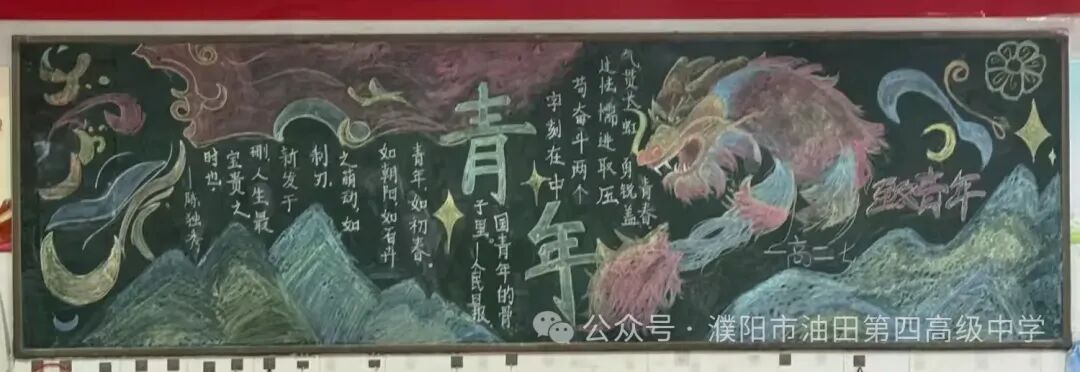 青年
青春
气贯长虹 勇锐盖
过怯懦进取压
苟奋斗两个
字刻在中
国青年的骨
子里。—人民日报
青年,如初春,
如朝阳如百卉
之萌动,如
利刃,
新发于
硎,人生最
宝贵之
时也.
——陈独秀
致青年
—高二七
公众号·濮阳市油田第四高级中学